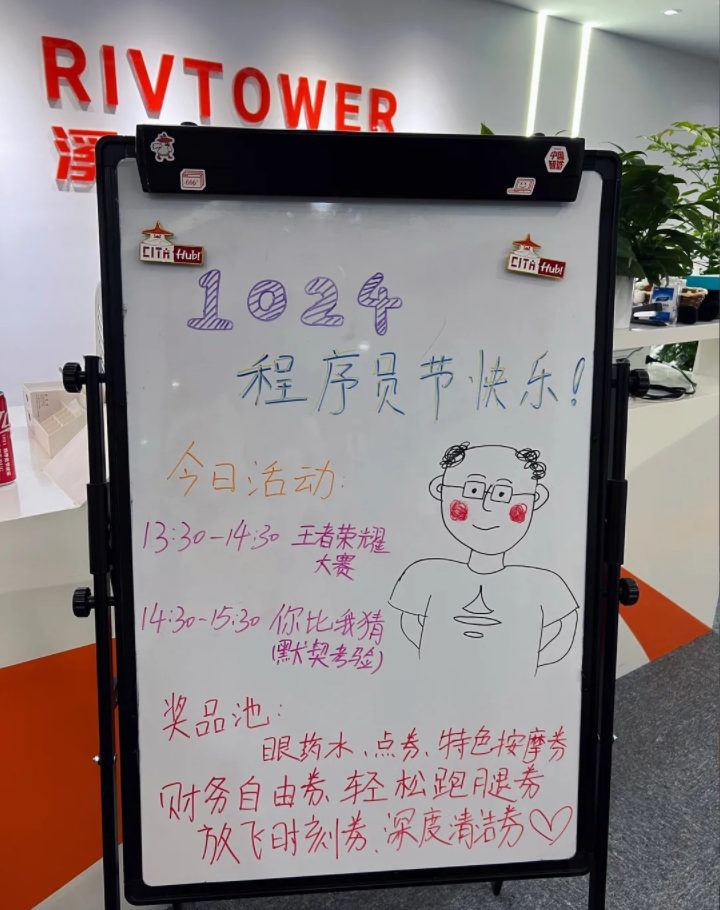 RIVTOWER
溪
中国智造
CITA Hub!
CITA Hub!
1024
程序员节快乐!
今日活动:
13:30-14:30 王者荣耀
大赛
14:30-15:30 你比我猜
(默契考验)
奖品池:
眼药水、点券、特色按摩券
财务自由券、轻松跑腿券
放飞时刻券、深度清洁券♡